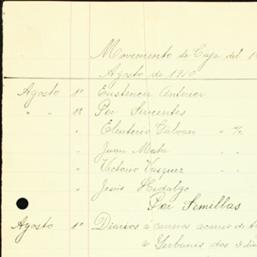 Movimiento de Caja del 1
Agosto de 1910
Agosto 1º Existencia Anterior
" " 12 Por Sirvientes
" Eleuterio Galvan " "
" Juan Mata " "
" Victorio Vasquez " "
" Jesús Hidalgo
Por Semillas
Agosto 1º Diarios á carros acarreo de
á Serbanis dos dia